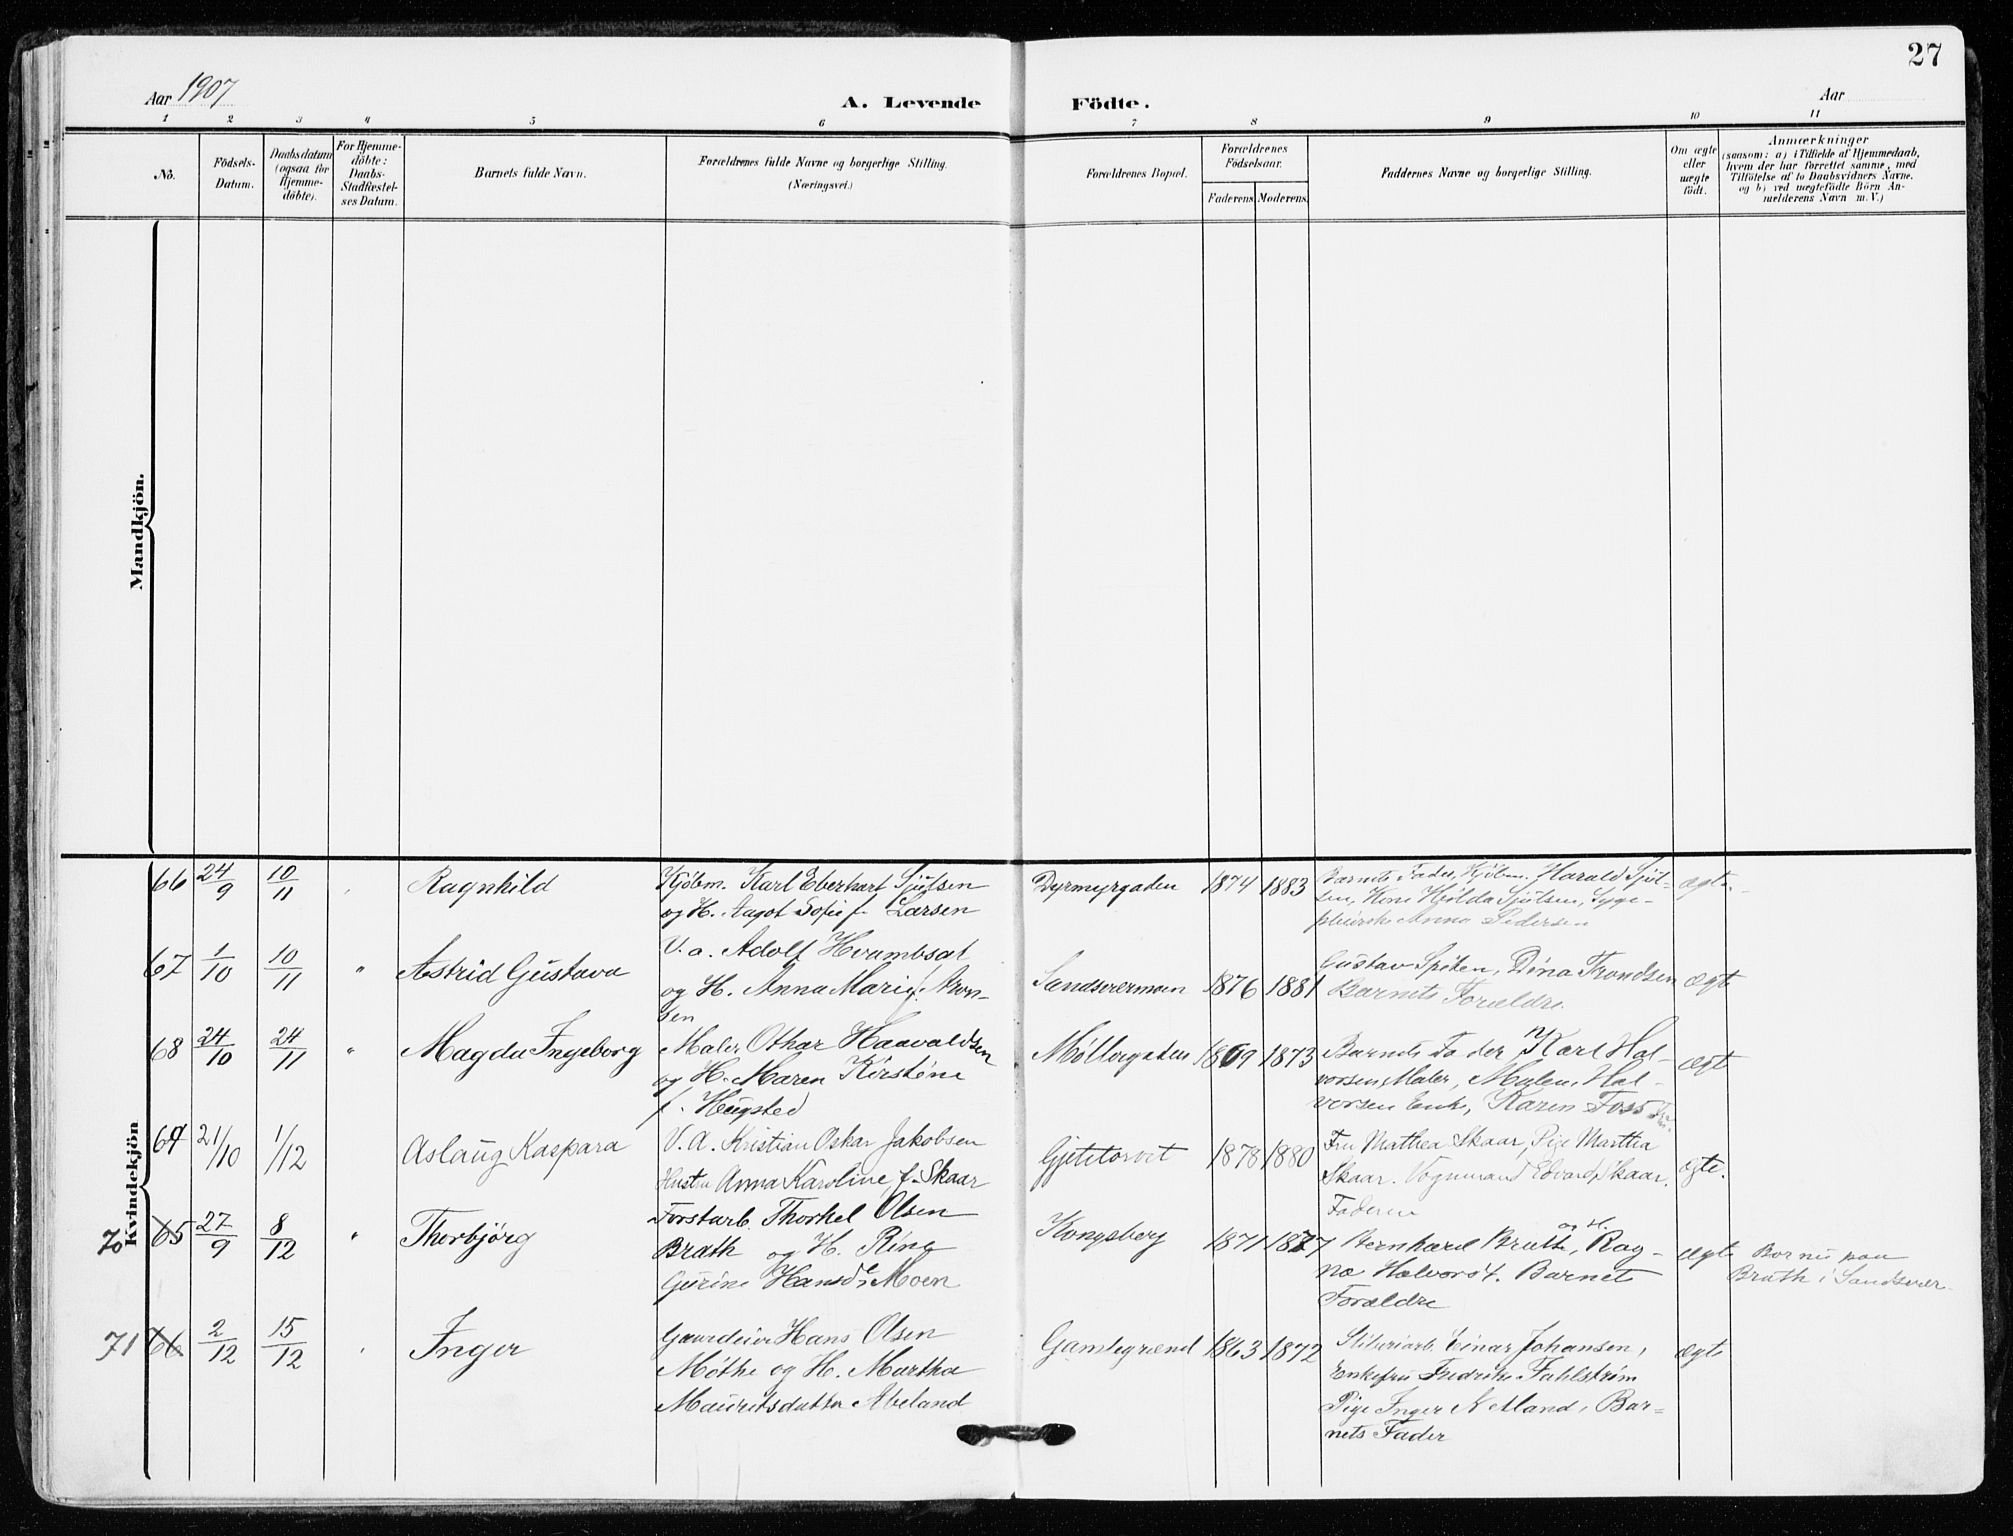 27
Aar 1907
A. Levende Födte.
Aar
1 2 3 4 5 6 7 8 9 10 11
No.
Födsels-
Datum.
Daabsdatum
(ogsaa for
Hjemme-
döbte).
For Hjemme-
döbte:
Daabs-
Stadfæstel-
ses Datum.
Barnets fulde Navn.
Forældrenes fulde Navne og borgerlige Stilling.
(Næringsvei.)
Forældrenes Bopæl.
Forældrenes
Födselsaar.
Faderens. Moderens.
Faddernes Navne og borgerlige Stilling.
Om ægte
eller
uægte
födt.
Anmærkninger
(saasom: a) i Tilfælde af Hjemmedaab,
hvem der har forrettet samme, med
Tilföielse af to Daabsvidners Navne.
og b) ved uægtefödte Börn An-
melderens Navn m. V.)
Mandkjön.
Kvindekjön
66 24/9 10/11 Ragnhild
Kjøbm. Karl Eberhart Sjulsen
og H. Aagot Sofie f. Larsen
Dyrmyrgaden 1874 1883
Barnets Fader, Kjøbm. Harald Sjul-
sen, Kone Hilda Sjulsen, Syge-
pleierske Anna Pedersen
ægte
67 1/10 10/11 " Astrid Gustava
V. a. Adolf Hvambsal
og H. Anna Marie Aron-
sen
Sandsværmoen 1876 1881
Gustav Spiten, Dina Trondsen
Barnets Forældre.
ægt
68 24/10 24/11 " Magda Ingeborg
Maler Othar Haavaldsen
og H. Maren Kirstine
f. Haugsted
Møllergaden 1869 1873
Barnets Fader, Karl Hal-
vorsen, Maler, Malen. Hal-
vorsen Enke, Karen Foss
ægt
69 21/10 1/12 Aslaug Kaspara
V. A. Kristian Oskar Jakobsen
Hustru Anna Karoline f. Skaar
Gjetetorvet 1878 1880
Fru Mathea Skaar, Pige Martha
Skaar. Vognmand Edvard Skaar.
Faderen
ægte.
70 65 27/9 8/12 " Thorbjørg
Forstarb. Thorkel Olsen
Brath og H. Ring
Gurine Hansd. Moen
Kongsberg 1871 1877
Bernhard Bruth, og H. Rag-
na Halvorsd. Barnet
Forældre
ægt
Bornie paa
Bruth i Sandsvær
71 66 2/12 15/12 Inger
Gaardeier Hans Olsen
Møthe og H. Martha
Mauritsdatter Abeland
Gamlegrænd 1863 1872
Sliberiarb. Einar Johansen,
Enkefru Fredrike Fahlstrøm
Pige Inger Ketland, Bar-
nets Fader
ægt